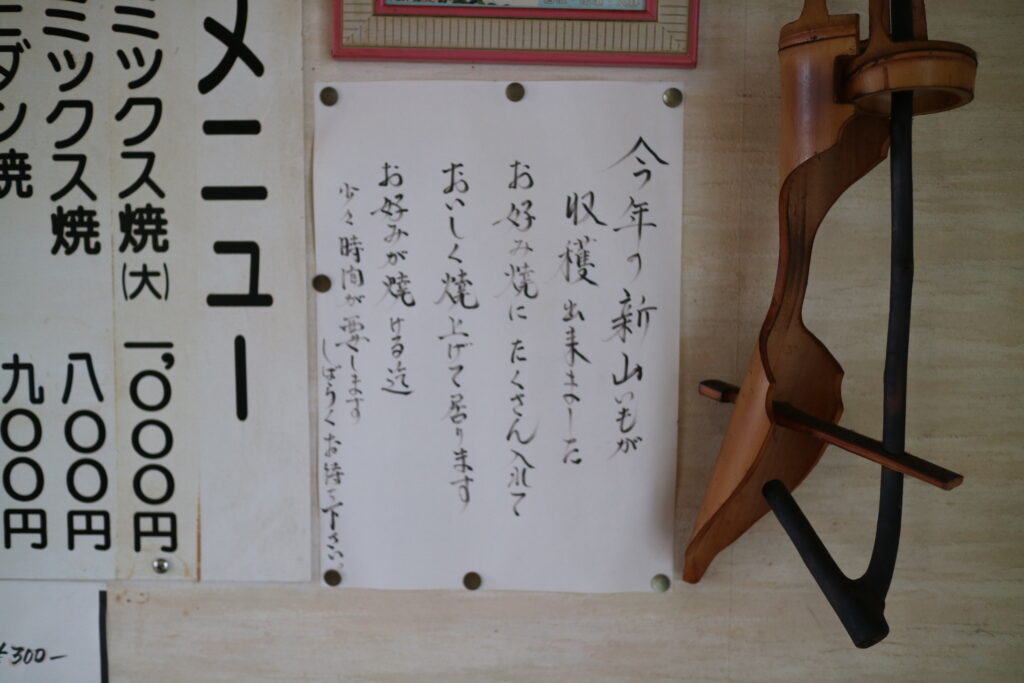 メニュー
ミックス焼(大) 一,〇〇〇円
ミックス焼 八〇〇円
モダン焼 九〇〇円
今年の新山いもが
収穫出来ました
お好み焼にたくさん入れて
おいしく焼上げて居ります
お好みが焼ける迄
少々時間が要します
しばらくお待ち下さい。
¥300-